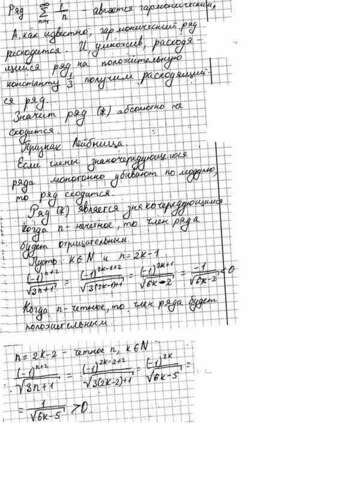 Ряд ∞∑n=1 1/n - является гармоническим,
А как известно, гармонический ряд
расходится. И умножив, расходя
щийся ряд на положительную
константу 1/3 получим расходящий-
ся ряд.
Значит ряд (*) абсолютно не
сходится.
Признак Лейбница
Если члены знакочередующегося
ряда монотонно убывают по модулю,
то ряд сходится.
Ряд (*) является знакочередующимся
Когда n - нечетное, то член ряда
будет отрицательным
Пусть k∈N и n = 2k-1
(-1)^{n+2}/√(3n+1) = (-1)^{2k-1+2}/√(3(2k-1)+1) = (-1)^{2k+1}/√(6k-2) = -1/√(6k-2) < 0
Когда n - четное, то член ряда будет
положительным
n = 2k-2 - четное n, k∈N
(-1)^{n+2}/√(3n+1) = (-1)^{2k-2+2}/√(3(2k-2)+1) = (-1)^{2k}/√(6k-5) =
= 1/√(6k-5) > 0